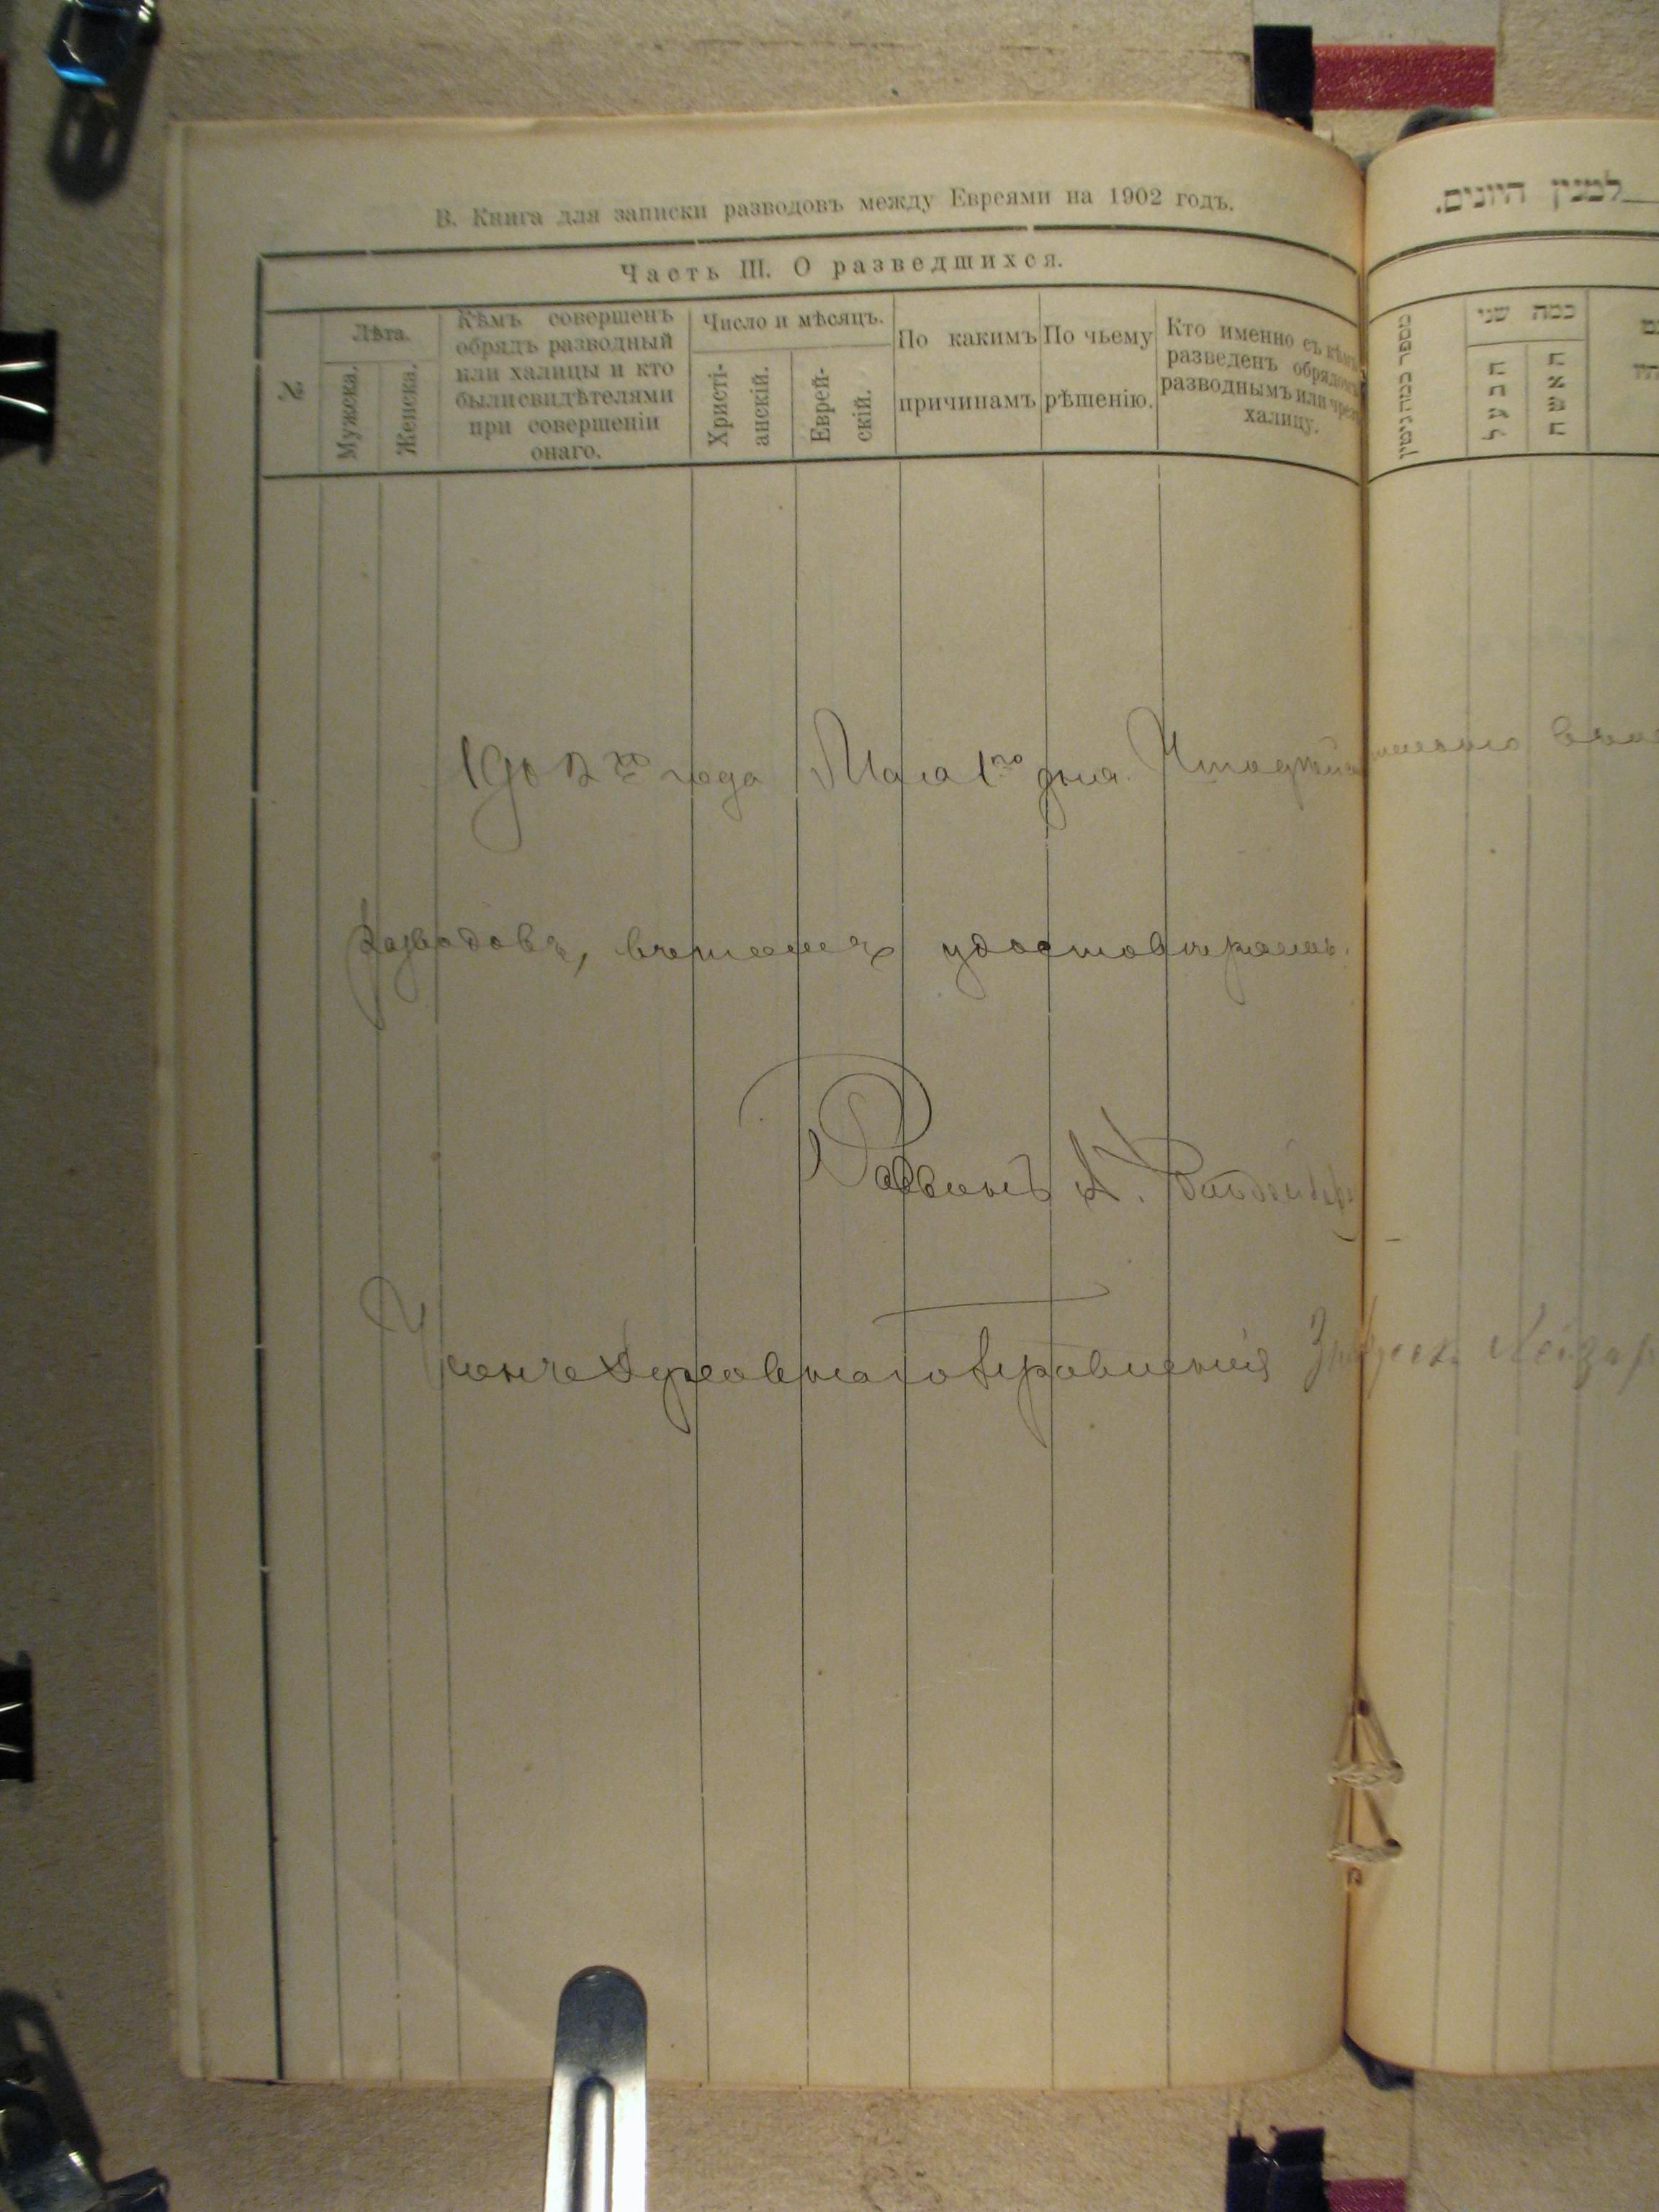 В. Книга для записки разводовъ между Евреями на 1902 годъ.
Часть III. О разведшихся.
№
Лѣта.
Мужска.
Женска.
Кѣмъ совершенъ
обрядъ разводный
или халицы и кто
были свидѣтелями
при совершеніи
онаго.
Число и мѣсяцъ.
Христі-
анскій.
Еврей-
скій.
По какимъ
причинамъ
По чьему
рѣшенію.
Кто именно съ кѣмъ
разведенъ обрядомъ
разводнымъ или чрезъ
халицу.
1902 го года Мая 1 го дня.
разводовъ, удостовѣряемъ.
Раввинъ А.
правленія
למנין היונים.
מספר כמה גיטין
כמה שני
הבעל
האשה